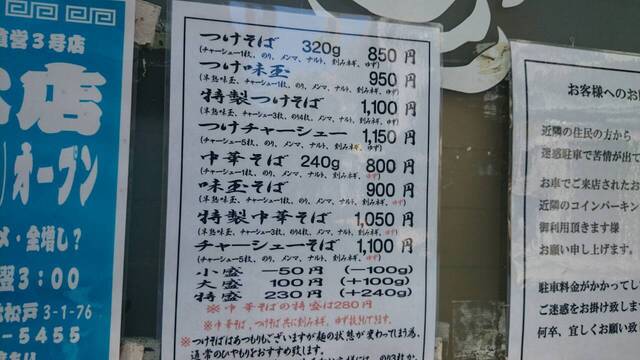 直営3号店
店
オープン
メ・全増し?
翌3:00
松戸3-1-76
-5455
つけそば 320g 850円
(チャーシュー1枚、のり、メンマ、ナルト、刻みネギ、ゆず)
つけ味玉 950円
(半熟味玉、チャーシュー1枚、のり、メンマ、ナルト、刻みネギ、ゆず)
特製つけそば 1,100円
(半熟味玉、チャーシュー3枚、のり4枚、メンマ、ナルト、刻みネギ、ゆず)
つけチャーシュー 1,150円
(チャーシュー5枚、のり、メンマ、ナルト、刻みネギ、ゆず)
中華そば 240g 800円
(チャーシュー1枚、のり、メンマ、ナルト、刻みネギ、ゆず)
味玉そば 900円
(半熟味玉、チャーシュー1枚、のり、メンマ、ナルト、刻みネギ、ゆず)
特製中華そば 1,050円
(半熟味玉、チャーシュー3枚、のり4枚、メンマ、ナルト、刻みネギ、ゆず)
チャーシューそば 1,100円
(チャーシュー5枚、のり、メンマ、ナルト、刻みネギ、ゆず)
小盛 −50円 (−100g)
大盛 100円 (+100g)
特盛 230円 (+240g)
※中華そばの特盛は280円
※中華そば、つけそば共に刻みネギ、ゆず抜きできます。
※つけそばはあつもりもございますが麺の状態が変わってしまう為、
通常のひやもりをおすすめ致します。
お客様へのお
近隣の住民の方から
迷惑駐車で苦情が出て
お車でご来店されたお
近隣のコインパーキン
御利用頂きます様
お願い申し上げます。
駐車料金がかかってし
ご迷惑をお掛け致しま
何卒、宜しくお願い致